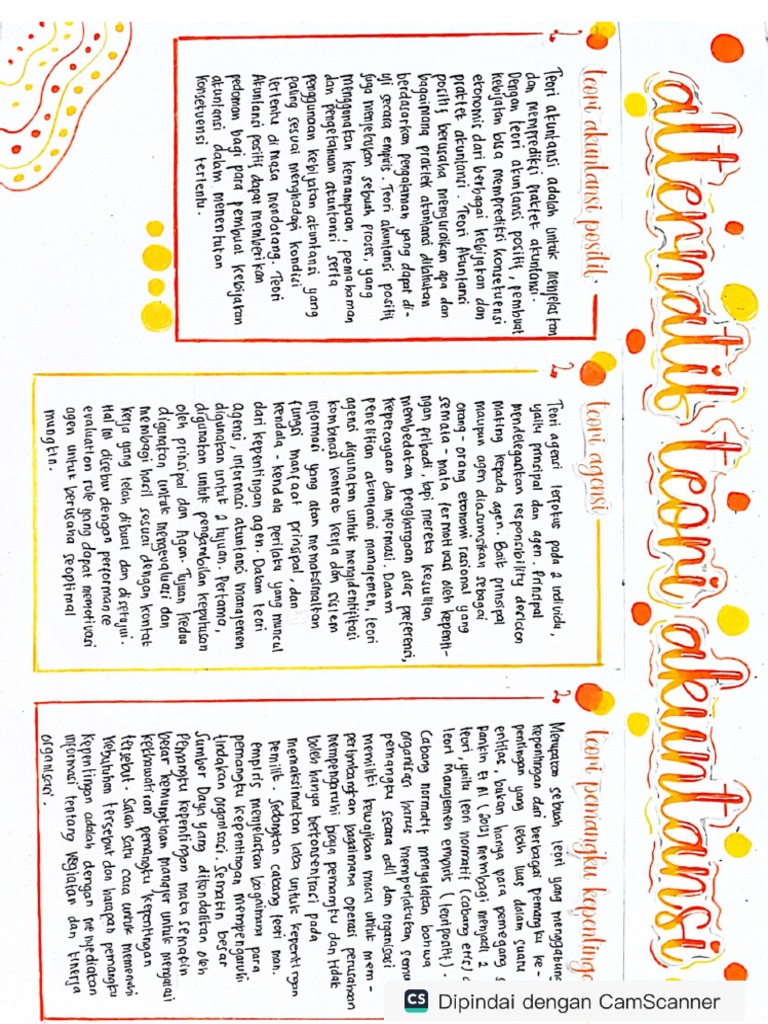 alternatif teori akuntansi
teori akuntansi positif.
Teori akuntansi adalah untuk menjelaskan
dan memprediksi praktek akuntansi.
Dengan teori akuntansi positif, pembuat
kebijakan bisa memprediksi konsekuensi
ekonomis dari berbagai kebijakan dan
praktek akuntansi. Teori Akuntansi
positif berusaha menguraikan apa dan
bagaimana praktek akuntansi dilakukan
berdasarkan pengalaman yang dapat di-
uji secara empiris. Teori akuntansi positif
juga menjelaskan sebuah proses, yang
menggunakan kemampuan, pemahaman
dan pengetahuan akuntansi serta
penggunaan kebijakan akuntansi yang
paling sesuai menghadapi kondisi
tertentu di masa mendatang. Teori
Akuntansi positif dapat memberikan
pedoman bagi para pembuat kebijakan
akuntansi dalam menentukan
konsekuensi tertentu.
teori agensi
Teori agensi terfokus pada 2 individu,
yaitu prinsipal dan agen. Prinsipal
mendelegasikan responsibility decision
making kepada agen. Baik prinsipal
maupun agen diasumsikan sebagai
orang-orang ekonomi rasional yang
semata-mata termotivasi oleh kepenti-
ngan pribadi, tapi mereka kesulitan
membedakan penghargaan atas preferensi,
kepercayaan dan informasi. Dalam
penelitian akuntansi manajemen, teori
agensi digunakan untuk mengidentifikasi
kombinasi kontrak kerja dan sistem
informasi yang akan memaksimalkan
fungsi manfaat prinsipal, dan
kendala-kendala perilaku yang muncul
dari kepentingan agen. Dalam teori
agensi, informasi akuntansi manajemen
digunakan untuk 2 tujuan. Pertama,
digunakan untuk pengambilan keputusan
oleh prinsipal dan Agen. Tujuan kedua
digunakan untuk mengevaluasi dan
membagi hasil sesuai dengan kontrak
kerja yang telah dibuat dan disetujui.
Hal ini disebut dengan performance
evaluation role yang dapat memotivasi
agen untuk berusaha seoptimal
mungkin.
teori pemangku kepentingan
Merupakan sebuah teori yang menggabung
kepentingan dari berbagai pemangku ke-
pentingan yang lebih luas dalam suatu
entitas, bukan hanya para pemegang s
Rankin Et Al membagi menjadi 2
teori, yaitu teori normatif (cabang etis)
teori Manajemen empiris (teori positif).
Cabang normatif mengatakan bahwa
organisasi harus memperlakukan semua
pemangku secara adil dan organisasi
memiliki kewajiban moral untuk mem-
pertimbangkan bagaimana operasi perusahaan
mempengaruhi biaya pemangku dan tidak
boleh hanya berkonsentrasi pada
memaksimalkan laba untuk kepentingan
pemilik. Sedangkan cabang teori man.
empiris menjelaskan bagaimana para
pemangku kepentingan mempengaruhi
tindakan organisasi. Semakin besar
Sumber Daya yang dikendalikan oleh
Pemangku kepentingan maka semakin
besar kemungkinan manajer untuk mengatasi
kekhawatiran pemangku kepentingan
tersebut. Salah satu cara untuk memenuhi
kebutuhan tersebut dan harapan pemangku
kepentingan adalah dengan menyediakan
informasi tentang kegiatan dan kinerja
organisasi.
CS Dipindai dengan CamScanner